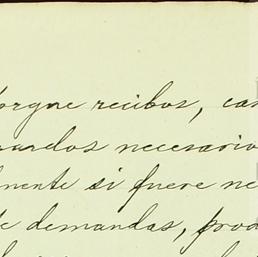 orgue recibos, can
uardos necesario
mente si fuere ne
de demandas, prod